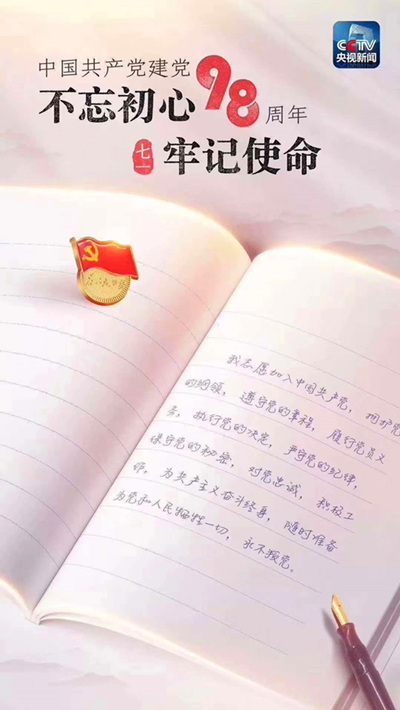 CCTV
央视新闻
中国共产党建党98周年
不忘初心
七一
牢记使命
我志愿加入中国共产党，拥护党
的纲领，遵守党的章程，履行党员义
务，执行党的决定，严守党的纪律，
保守党的秘密，对党忠诚，积极工
作，为共产主义奋斗终身，随时准备
为党和人民牺牲一切，永不叛党。